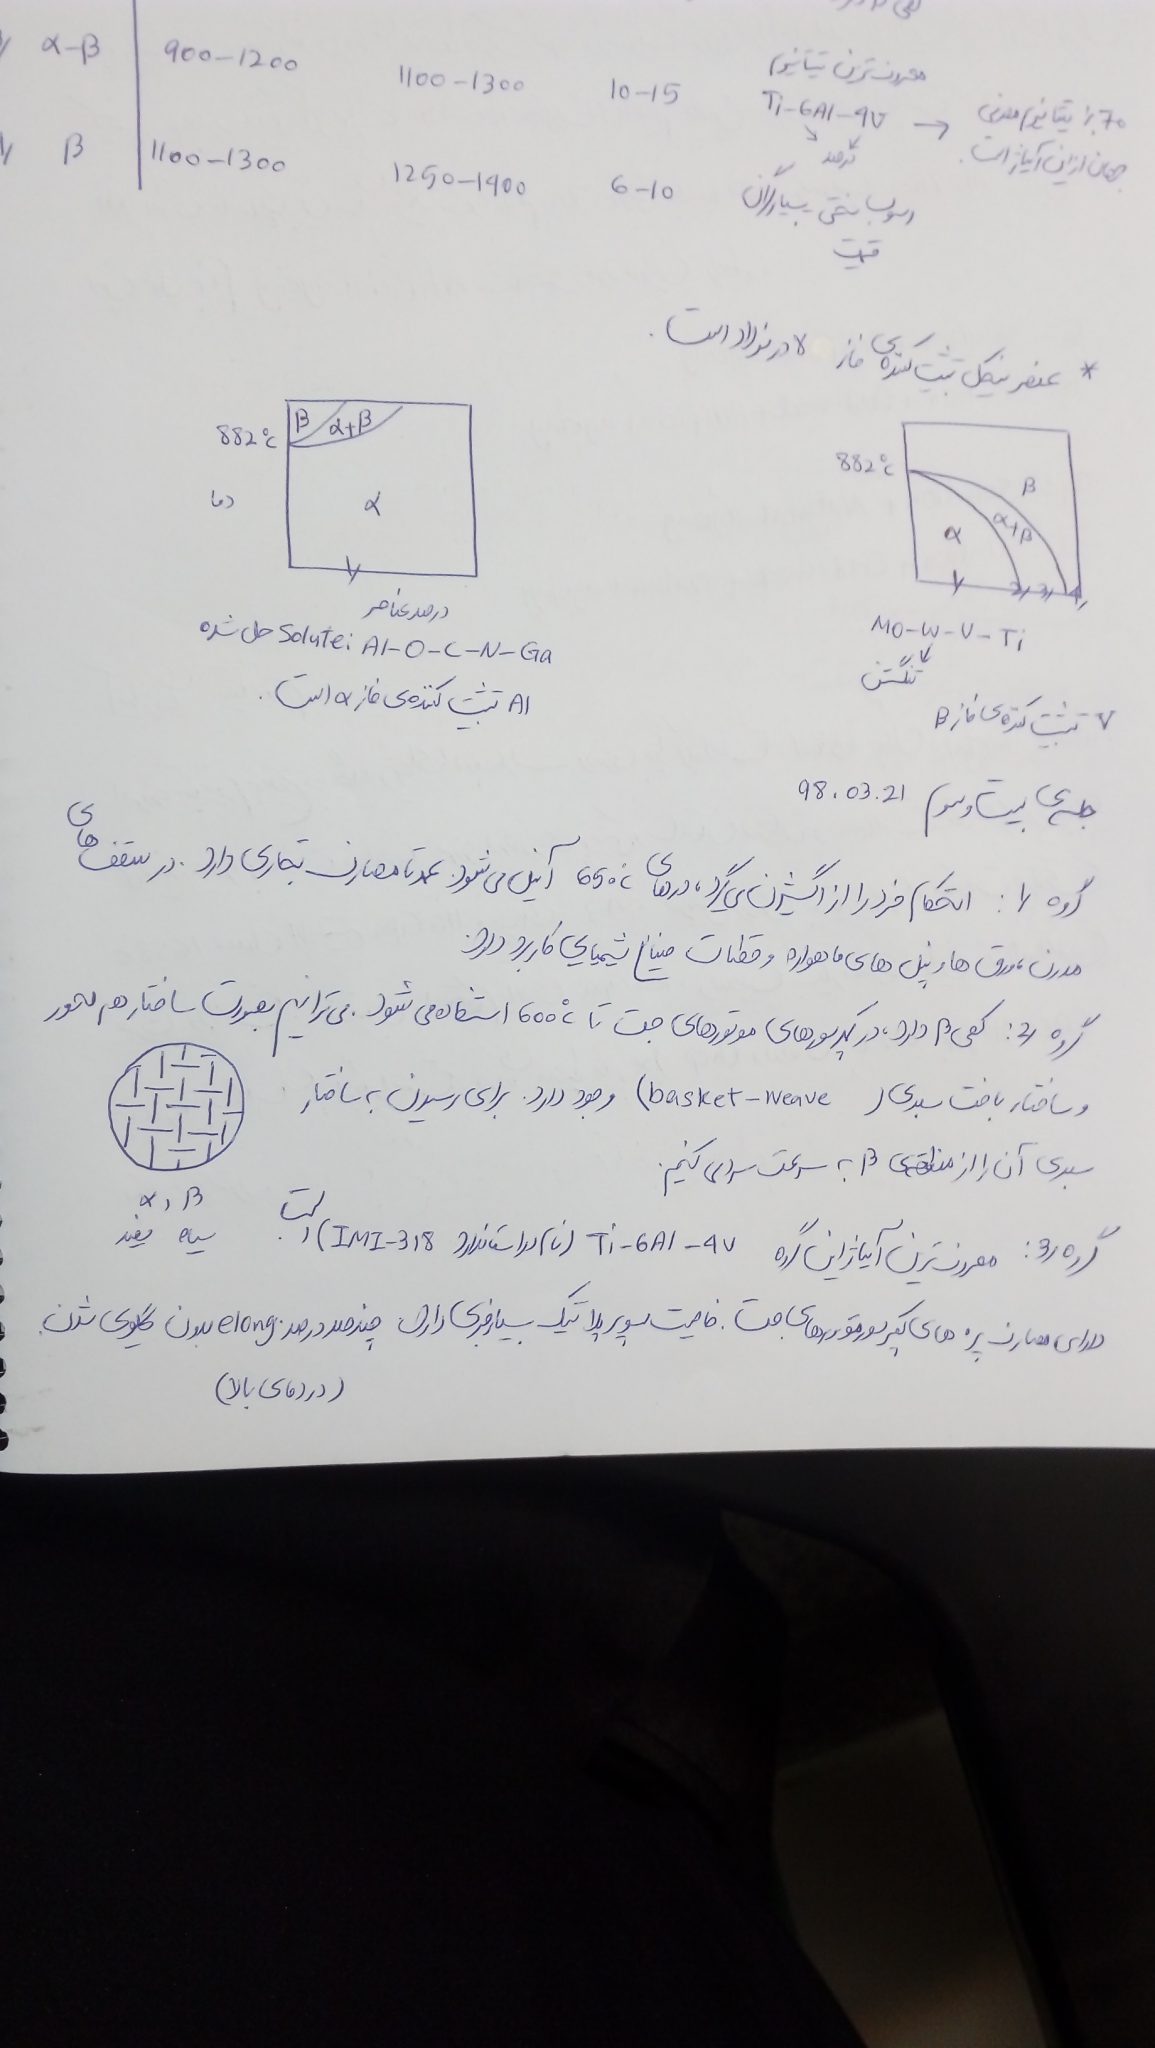 α-β 900-1200 1100-1300 10-15 معروف‌ترین تیتانیوم
Ti-6Al-4V → 70٪ تیتانیوم مصرفی
درصد جهان از این آلیاژ است.
β 1100-1300 1250-1400 6-10 رسوب سختی بسیار گران
قیمت
* عنصر نیکل تثبیت کننده‌ی فاز γ در فولاد است.
882°C β α+β
دما α
درصد عناصر
حل شده Solute: Al-O-C-N-Ga
Al تثبیت کننده‌ی فاز α است.
882°C β
α α+β
1 2 3 4
Mo-W-V-Ti
تنگستن
V تثبیت کننده‌ی فاز β
جلسه‌ی بیست و سوم 98.03.21
گروه 1: استحکام خود را از اکسیژن می‌گیرد، در دمای 650°C آنیل می‌شود. عمدتا مصارف تجاری دارد. در سقف‌های
مدرن، ورق ها و پنل های ماهواره و قطعات صنایع شیمیایی کاربرد دارد.
گروه 2: کمی β دارد، در کمپرسورهای موتورهای جت تا 600°C استفاده می‌شود. می‌توانیم بصورت ساختار هم محور
و ساختار بافت سبدی (basket-weave) وجود دارد. برای رسیدن به ساختار
سبدی آن را از منطقه‌ی β به سرعت سرد می کنیم.
α, β
سیاه سفید
گروه 3: معروف‌ترین آلیاژ این گروه Ti-6Al-4V (نام در استاندارد IMI-318) است.
دارای مصارف پره های کمپرسور موتورهای جت. خاصیت سوپر پلاستیک بسیار خوبی دارد. چند صد درصد elong. بدون گلویی شدن.
(در دمای بالا)